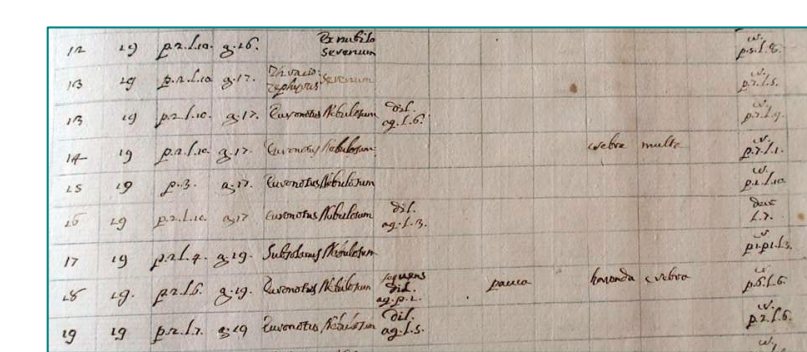 12 19 p.2.l.10. g.16. Ex nubilo Serenum w. p.5.l.8.
13 19 p.2.l.10 g.17. Zephyrus Serenum w. p.7.l.5.
13 19 p.2.l.10. g.17. Euronotus Nebulosum dil. aq.l.6. w. p.7.l.9.
14 19 p.2.l.10. g.17. Euronotus Nebulosum crebra multa w. p.7.l.1.
15 19 p.3. g.17. Euronotus Nebulosum w. p.1.l.10.
16 19 p.2.l.10. g.17 Euronotus Nebulosum dil. aq.l.3. l.7.
17 19 p.2.l.4. g.19. Subsolanus Nebulosum w. p.1.l.3.
18 19. p.2.l.6. g.19. Euronotus Nebulosum dil. aq.p.1. pauca horrenda crebra w. p.6.l.6.
19 19 p.2.l.7. g.19 Euronotus Nebulosum dil. aq.l.5. w. p.2.l.6.